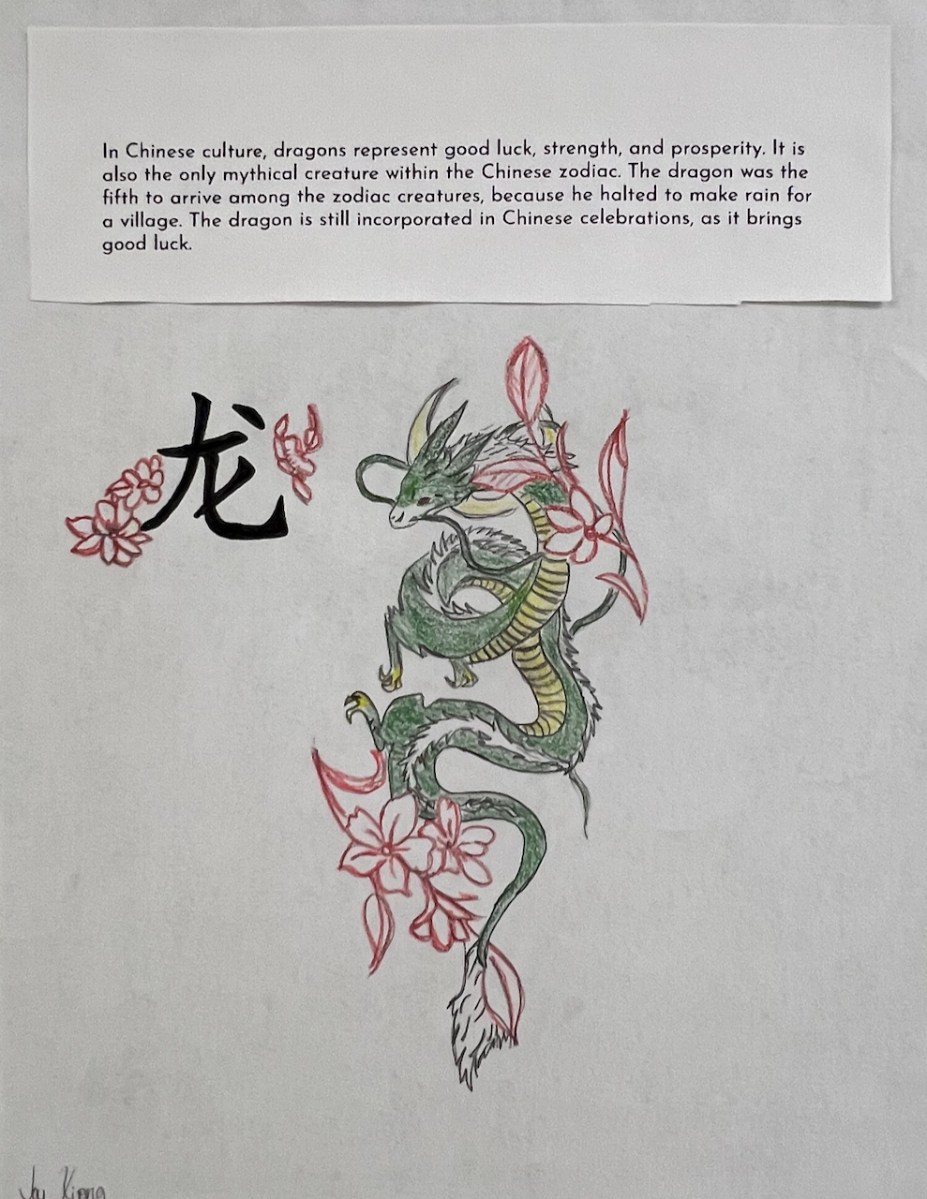 In Chinese culture, dragons represent good luck, strength, and prosperity. It is
also the only mythical creature within the Chinese zodiac. The dragon was the
fifth to arrive among the zodiac creatures, because he halted to make rain for
a village. The dragon is still incorporated in Chinese celebrations, as it brings
good luck.
龙